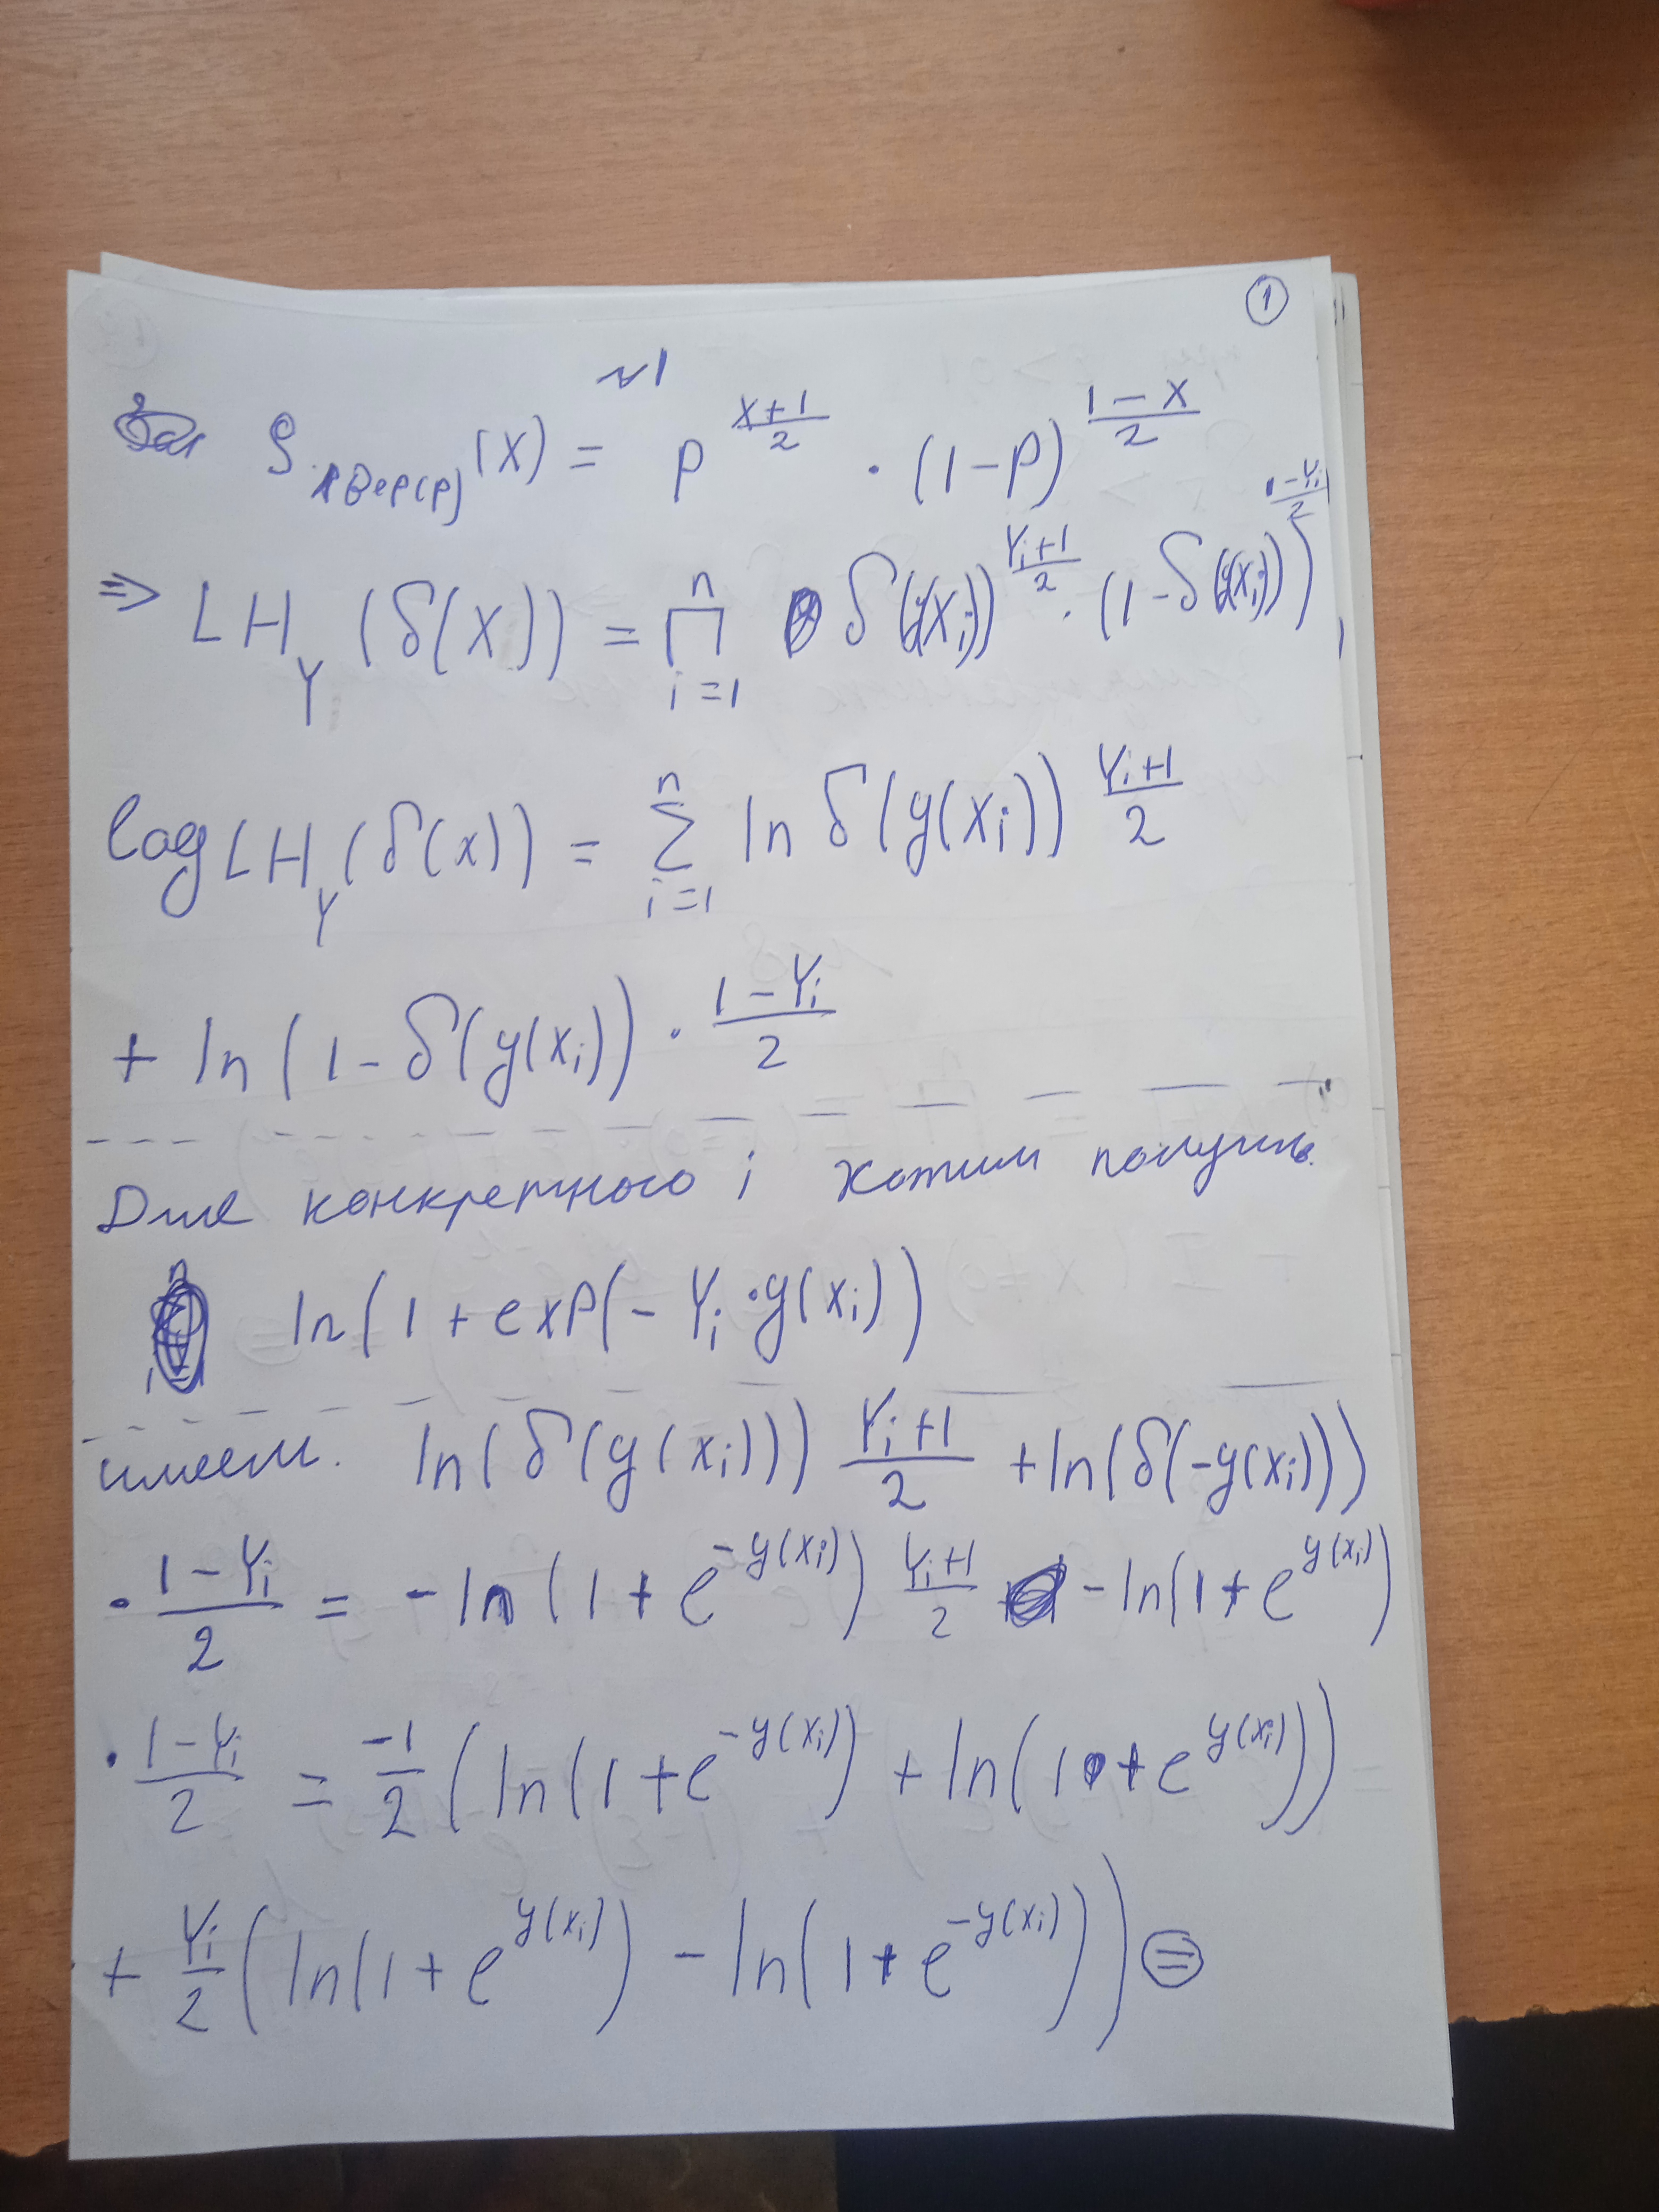 ①
№1
ρ_{1Вер(p)}(x) = p^{\frac{x+1}{2}} · (1-p)^{\frac{1-x}{2}}
⇒ LH_Y (δ(x)) = ∏_{i=1}^{n} δ(y(x_i))^{\frac{Y_i+1}{2}} · (1-δ(y(x_i)))^{\frac{1-Y_i}{2}}
log LH_Y (δ(x)) = ∑_{i=1}^{n} ln δ(y(x_i)) \frac{Y_i+1}{2}
+ ln(1-δ(y(x_i)) · \frac{1-Y_i}{2}
Для конкретного i хотим получить.
ln(1+exp(-Y_i·y(x_i))
имеем. ln(δ(y(x_i))) \frac{Y_i+1}{2} + ln(δ(-y(x_i)))
· \frac{1-Y_i}{2} = -ln(1+e^{-y(x_i)}) \frac{Y_i+1}{2} - ln(1+e^{y(x_i)})
· \frac{1-Y_i}{2} = \frac{-1}{2}(ln(1+e^{-y(x_i)}) + ln(1+e^{y(x_i)}))
+ \frac{Y_i}{2}(ln(1+e^{y(x_i)}) - ln(1+e^{-y(x_i)})) ⊜